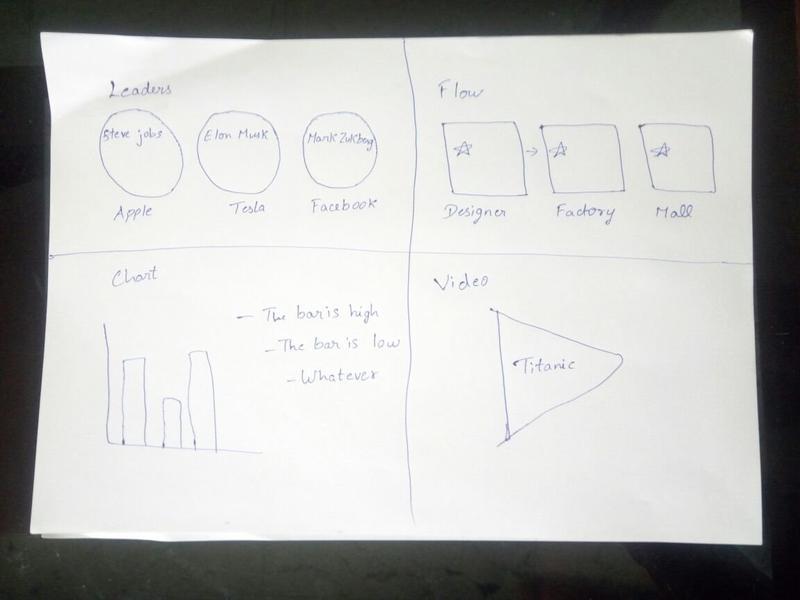 Leaders
Steve jobs
Elon Musk
Mark Zukberg
Apple
Tesla
Facebook
Flow
Designer
Factory
Mall
Chart
- The bar is high
- The bar is low
- Whatever
Video
Titanic